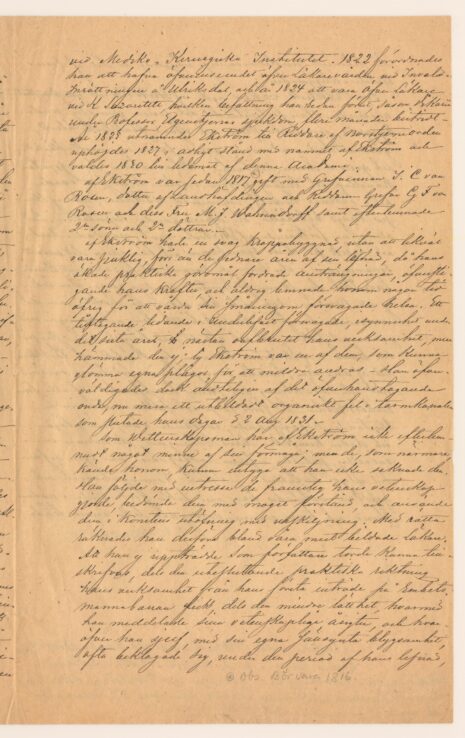 vid Mediko-Kirurgiska Institutet. 1822 förordnades
han att hafva öfverinseendet öfver Läkarevården vid Invalid-
Inrättningen å Ulriksdal, och år 1824 att vara öfver Läkare
vid K. Lazarettet hvilken befattning han redan förut, såsom Vikarie
under Professor sjukdom, flere Månader bestridt.
År 1825 utnämndes Ekström till Riddare af Nordstjerneorden
upphöjdes 1827 i adligt stånd med namnet af Ekström och
valdes 1830 till ledamot af denna Academi.
af Ekström var sedan 1817 gift med Grefvinnan S. C von
Rosen, dotter af Landshöfdingen och Riddaren Grefve G. F von
Rosen och dess Fru M. J. Wahrendorff samt efterlemnade
2ne söner och 2ne döttrar.
af Ekström hade en svag kroppsbyggnad utan att likväl
vara sjuklig, för än de sednare åren af sin lefnad, då hans
ökade praktiska göromål fordrade ansträngningar, öfversti-
gande hans krafter och aldrig lemnade honom någon tid
öfrig för att vårda sin småningom försvagade helsa. Ett
tilltagande lidande i underlifvet förmådde, isynnerhet under
det sista året, nästan oafbrutet hans verksamhet, men
hämmade den ej; ty Ekström var en af dem, som kunna
glömma egna plågor, för att mildra andras. Han öfver-
väldigades dock ändteligen af det öfverhandtagande
onda, nu mera ett utbildadt organiskt fel i tarmkanalen
som slutade hans dagar d. 2 Aug 1831.
Som Wettenskapsman har af Ekström icke efterlem-
nadt något minne af sin förmåga; men de, som närmare
kände honom, kunna intyga att han icke saknade den.
Han följde med intresse de framsteg hans vetenskap
gjorde, bedömde dem med moget förstånd, och använde
dem i konstens utöfning med urskiljning. Med rätta
räknades han derföre bland våra mest bildade Läkare.
Att han ej uppträdde som författare torde kunna till-
skrifvas, dels den uteslutande praktiska riktning
hans verksamhet från hans första inträde på Embets-
mannabanan fick, dels den mindre lätthet, hvarmed
han meddelade sina vetenskapliga åsigter, och hvar-
öfver han sjelf, med sin egna blygsamhet,
ofta beklagade sig, under den period af hans lefnad,